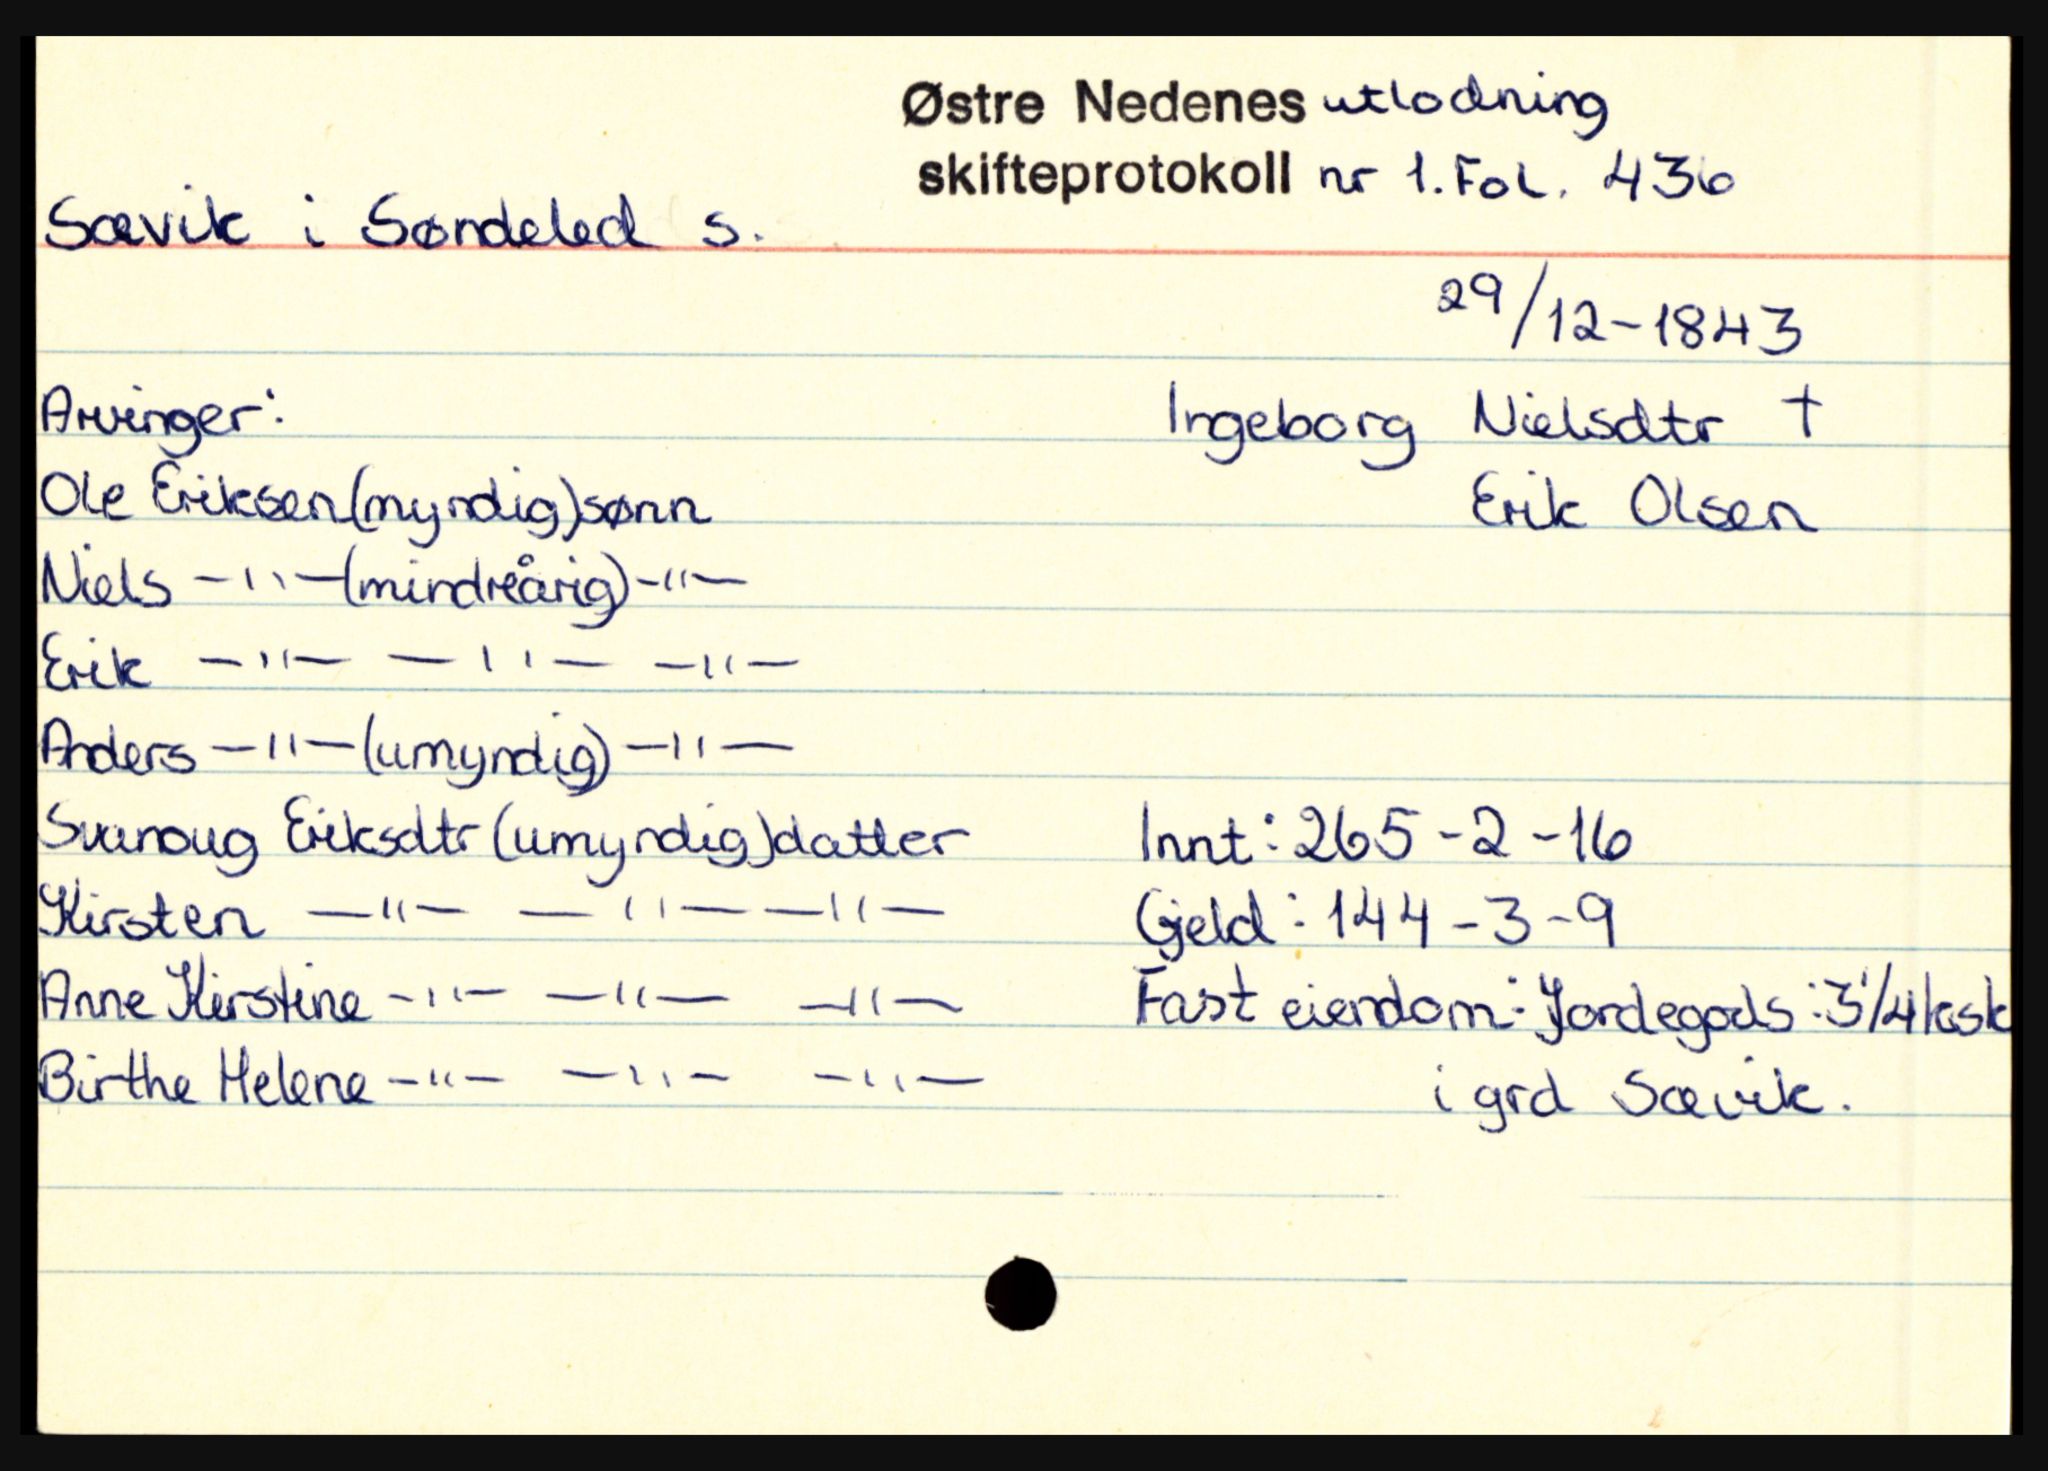 Østre Nedenes utlodning
skifteprotokoll nr 1. Fol. 436
Sævik i Søndeled s.
29/12-1843
Arvinger: Ingeborg Nielsdtr †
Ole Eriksen (myndig) sønn Erik Olsen
Niels -"- (mindreårig) -"-
Erik -"- -"- -"-
Anders -"- (umyndig) -"-
Svanoug Eriksdtr (umyndig) datter Innt: 265-2-16
Kirsten -"- -"- -"- Gjeld: 144-3-9
Anne Kirstine -"- -"- -"- Fast eiendom: Jordegods: 3 1/4 ksk
Birthe Helene -"- -"- -"- i grd Sævik.